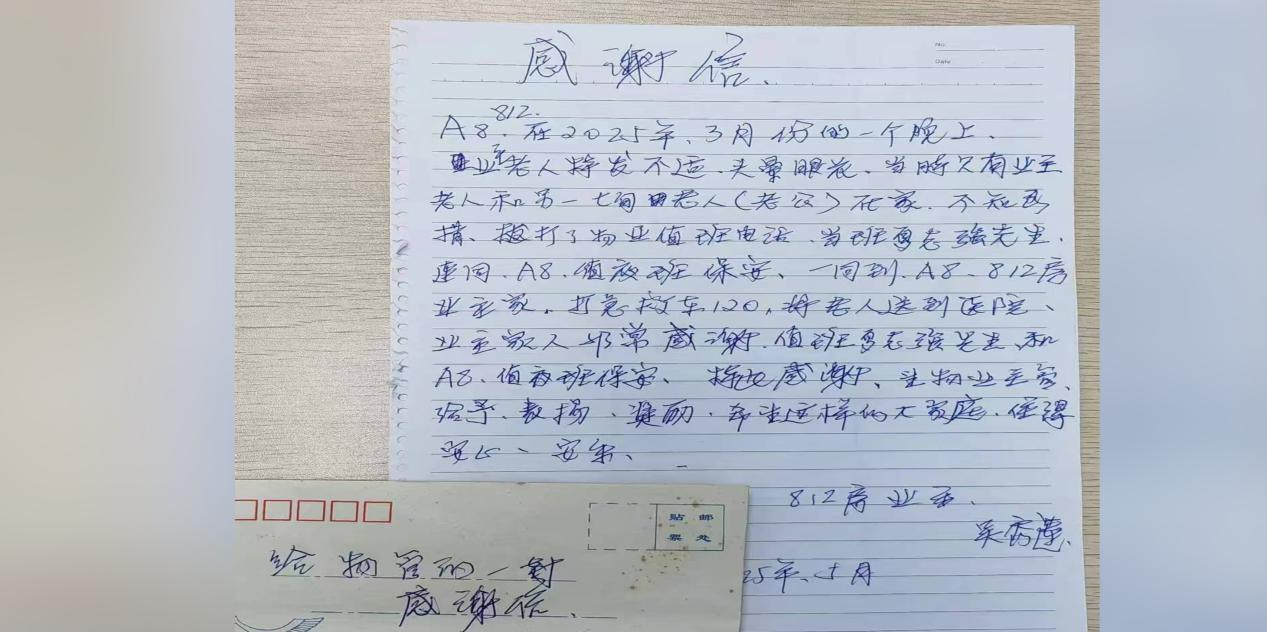 感谢信、
No.
Date
812.
A8.在2025年、3月份的一个晚上、
业主老人特发不适、头晕眼花、当时只有业主
老人和另一七旬男老人(老公)在家、不知所
措、拨打了物业值班电话、当班 志强先生、
连同、A8、值夜班保安、一同到、A8、812房
业主家。打急救车120。将老人送到医院、
业主家人非常感谢、值班 志强先生、和
A8、值夜班保安、特此感谢、望物业主家、
给予、表扬、奖励、希望这样的大家庭、住得
安心、安乐、
812房业主、
吴秀莲、
25年、5月
贴邮
票处
给物管的一封
感谢信、